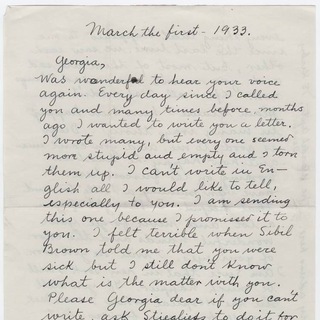 March the first - 1933.
Georgia,
Was wonderful to hear your voice
again. Every day since I called
you and many times before, months
ago I wanted to write you a letter.
I wrote many, but every one seemed
more stupid and empty and I torn
them up. I can't write in En-
glish all I would like to tell,
especially to you. I am sending
this one because I promised it to
you. I felt terrible when Sibil
Brown told me that you were
sick but I still don't know
what is the matter with you.
Please Georgia dear if you can't
write, ask Stieglitz to do it for